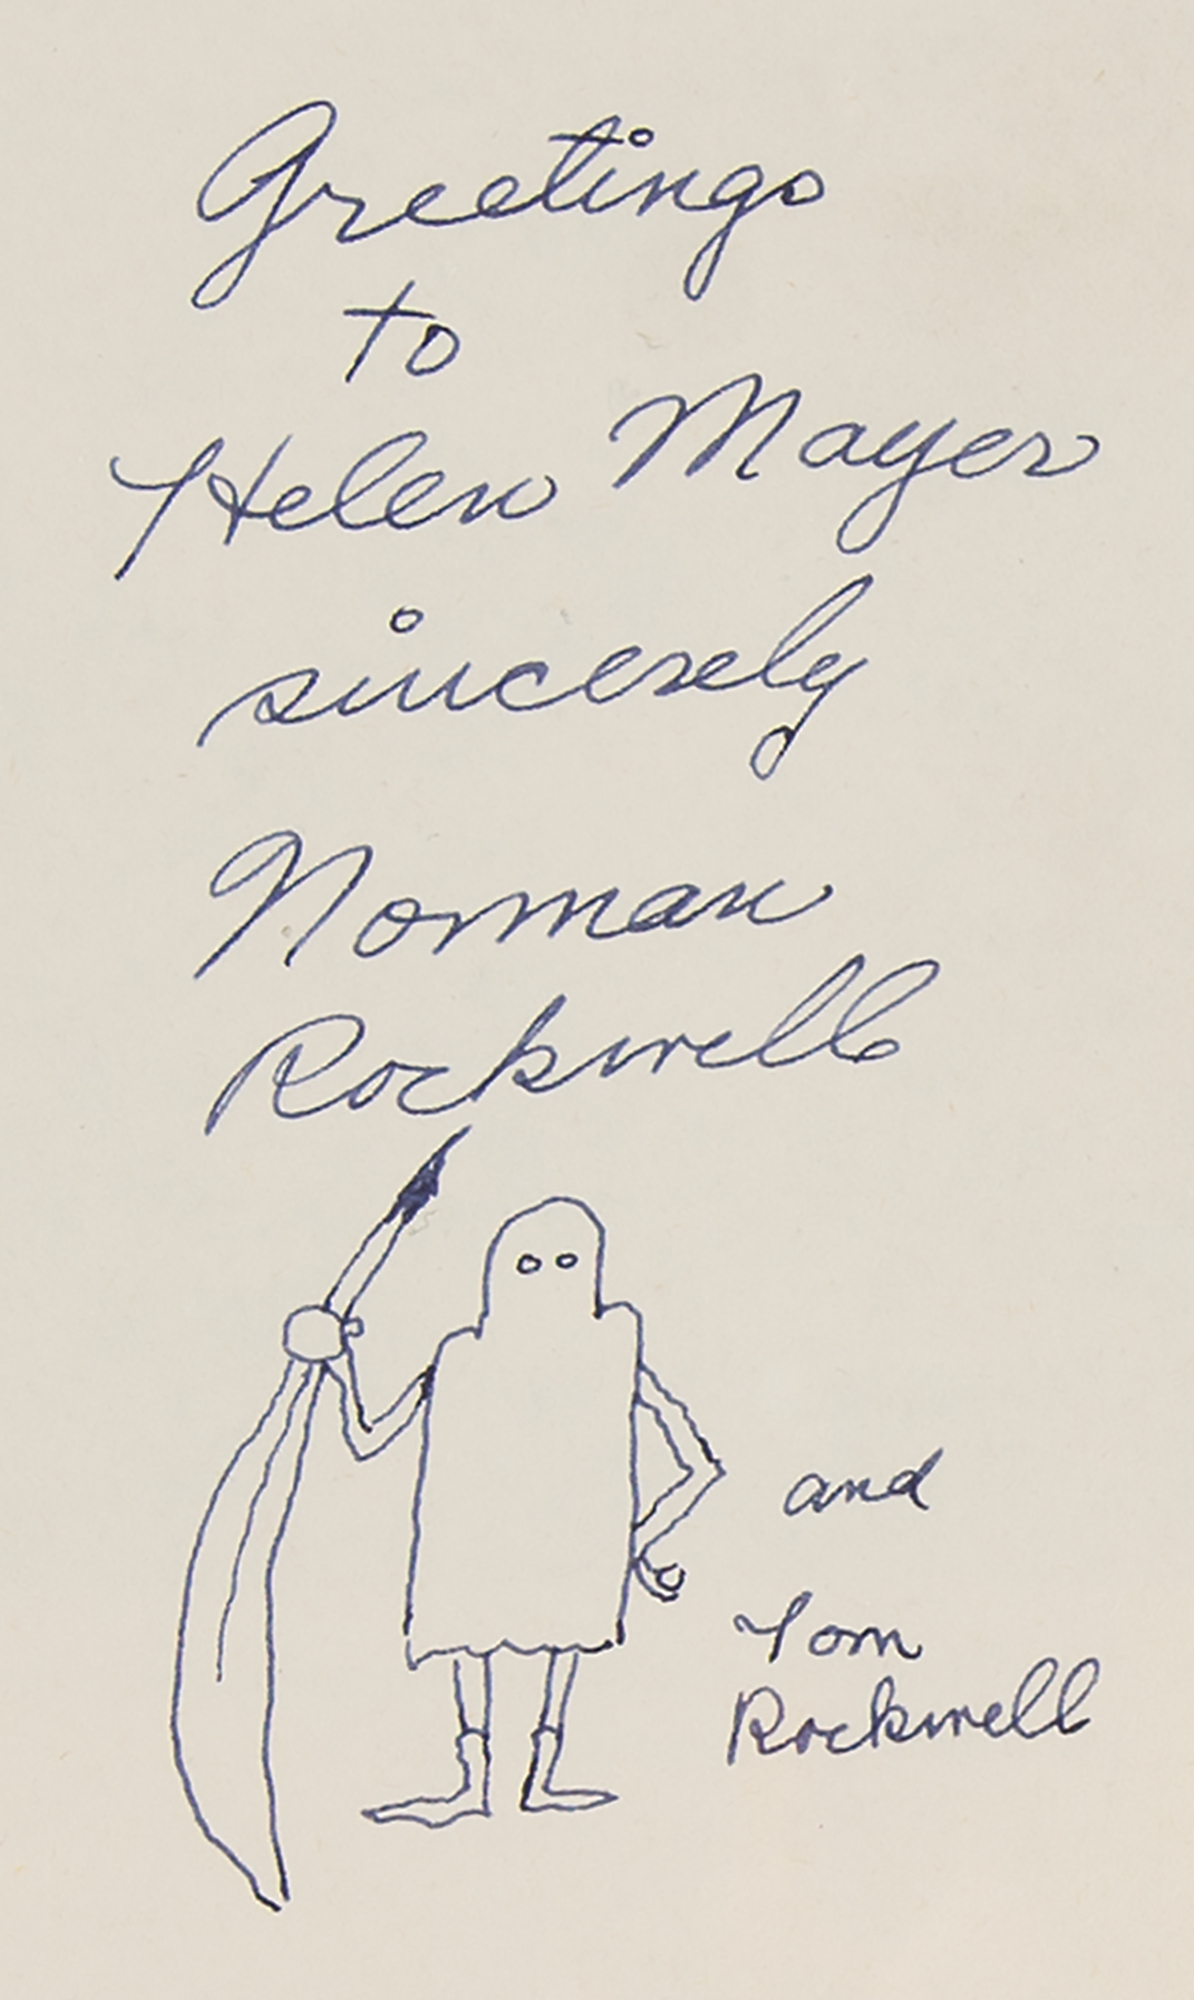 Greetings
to
Helen Mayer
sincerely
Norman
Rockwell
and
Tom
Rockwell